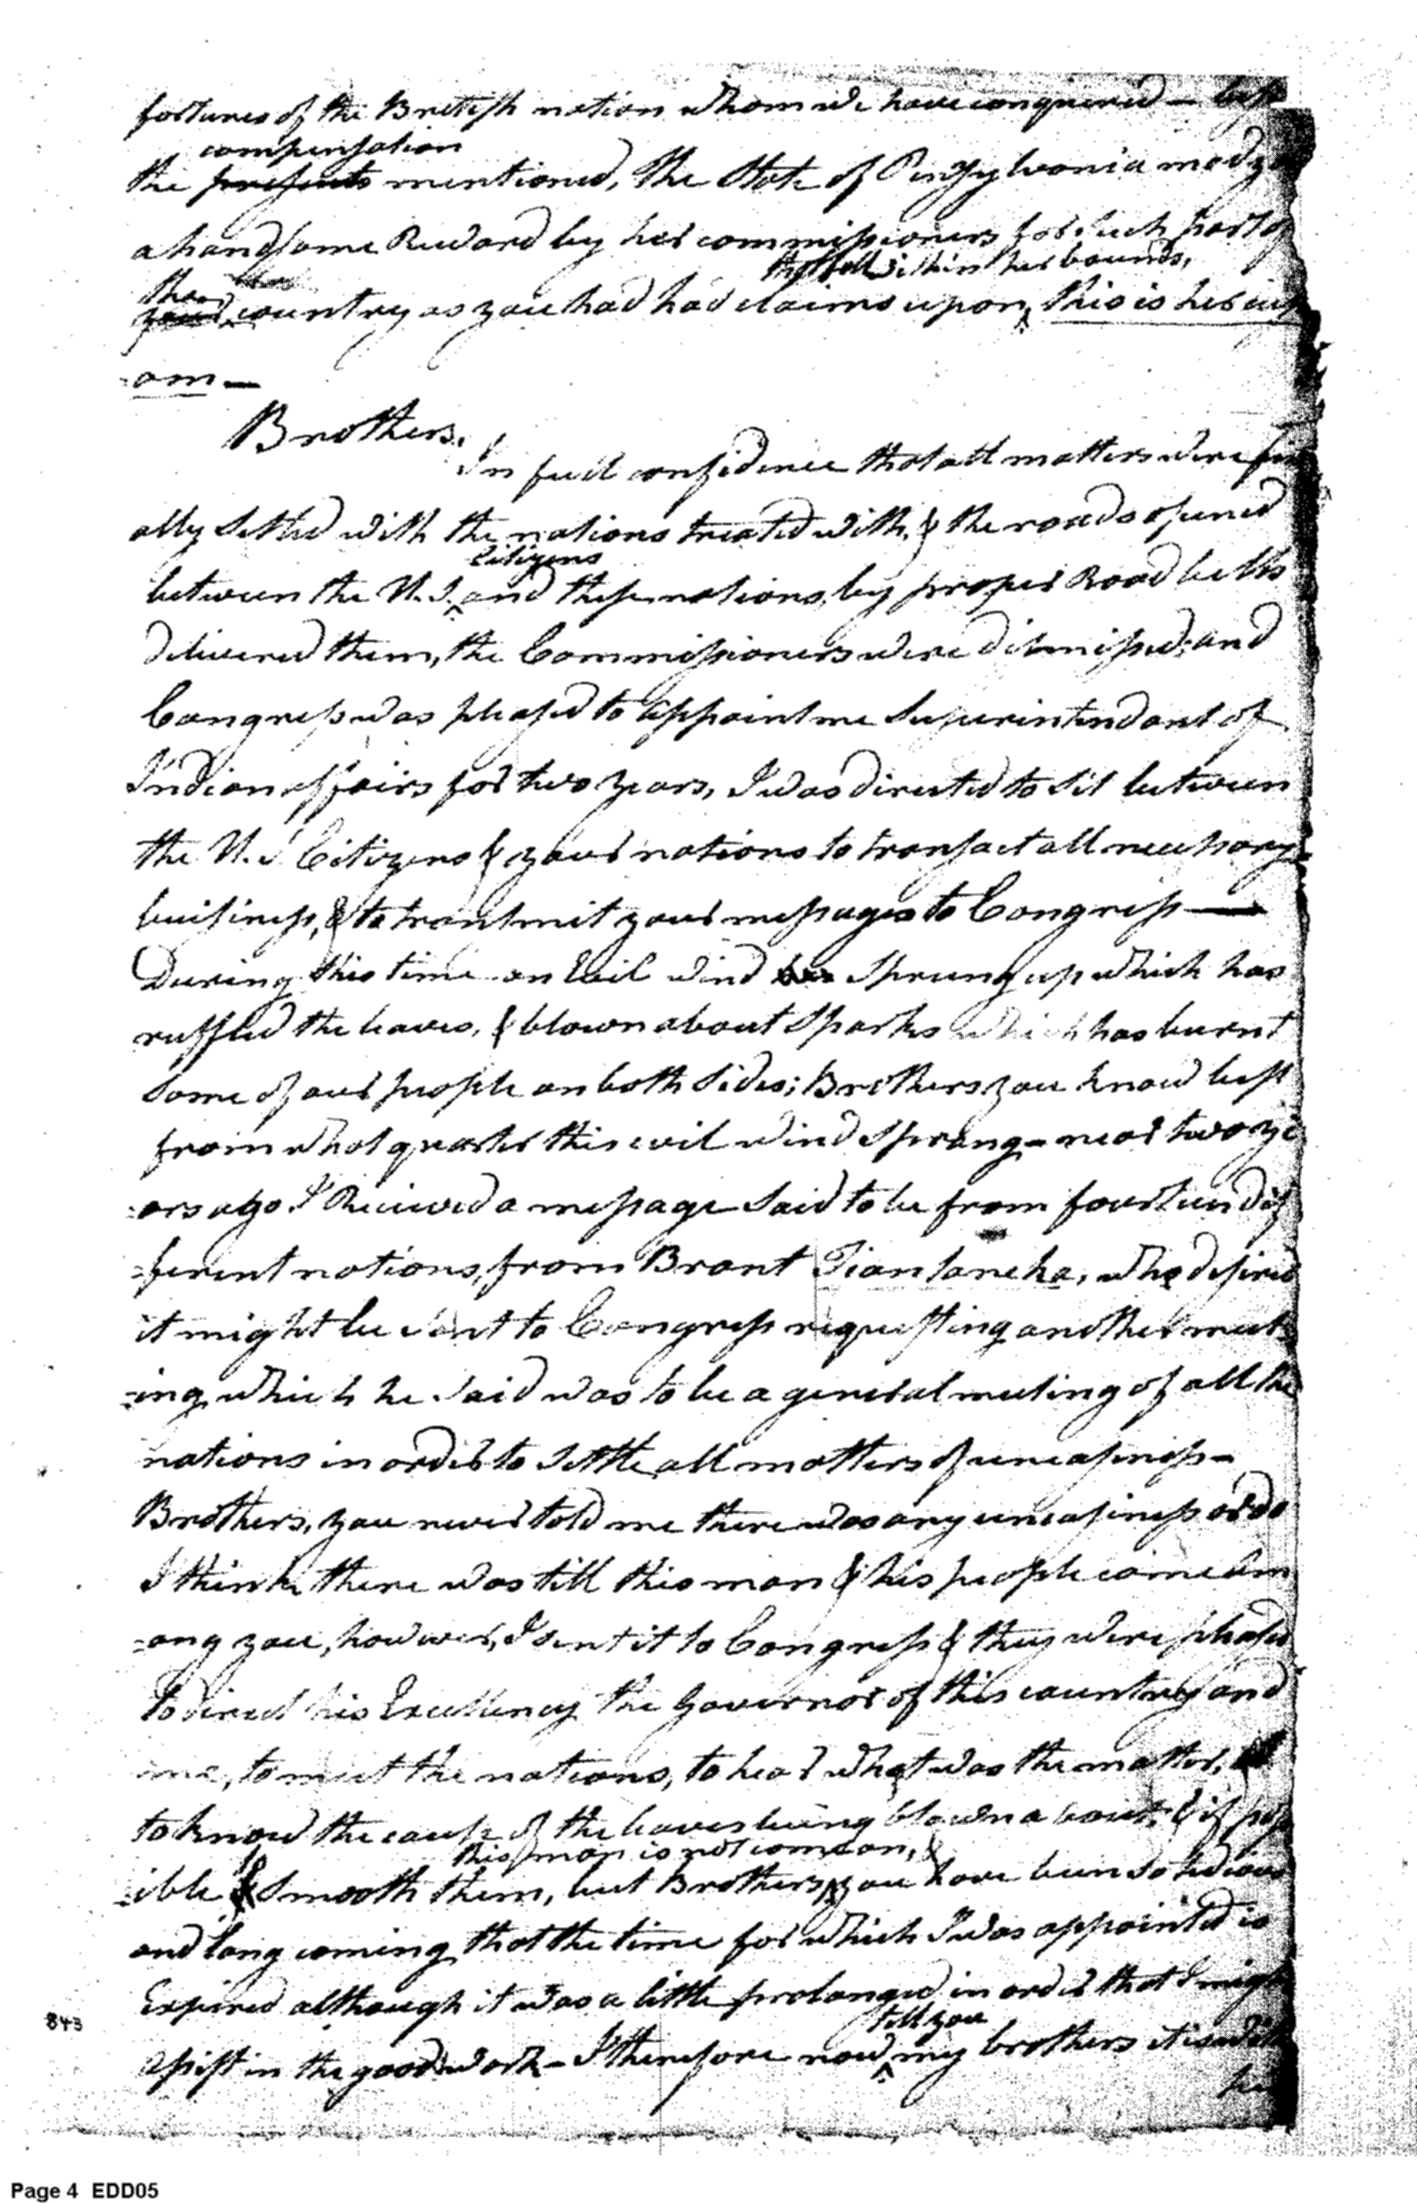 fortunes of the British nation whom we have conquered —
compensation
the presents mentioned, the State of Pensylvania made
a handsome Reward by her commissioners for such part of
that fell within her bounds,
the
your country as you had had claims upon, this is her cust
=om—
Brothers.
In full confidence that all matters were fin
ally setled with the nations treated with, & the roads opened
Citizens
between the U. S. and these nations, by proper Road belts
delivered them, the Commissioners were dismissed; and
Congress was pleased to appoint me Superintendant of
Indian affairs for two years, I was directed to sit between
the U. S. Citizens & your nations to transact all necessary
buisiness, & to transmit your messages to Congress —
During this time an Evil wind has sprung up which has
ruffled the leaves, & blown about sparks which has burnt
some of our people on both sides; Brothers you know best
from what quarter this evil wind sprang - near two ye
=ars ago I Recieved a message said to be from fourteen dif
=ferent nations, from Brant Tiantaneha, who desired
it might be sent to Congress requesting another meet
=ing which he said was to be a general meeting of all the
nations in order to settle all matters of uneasiness -
Brothers, you never told me there was any uneasiness or do
I think there was till this man & his people came am
=ong you, however, I sent it to Congress & they were pleased
to direct his Excellency the Governor of this country and
me, to meet the nations, to hear what was the matter,
to know the cause of the leaves being blown about, & if poss
this man is not come on, &
=ible & smooth them, but Brothers, you have been so tedious
and long coming that the time for which I was appointed is
Expired although it was a little prolonged in order that I might
tell you
assist in the good work - I therefore now my brothers it is with
843
Page 4 EDD05